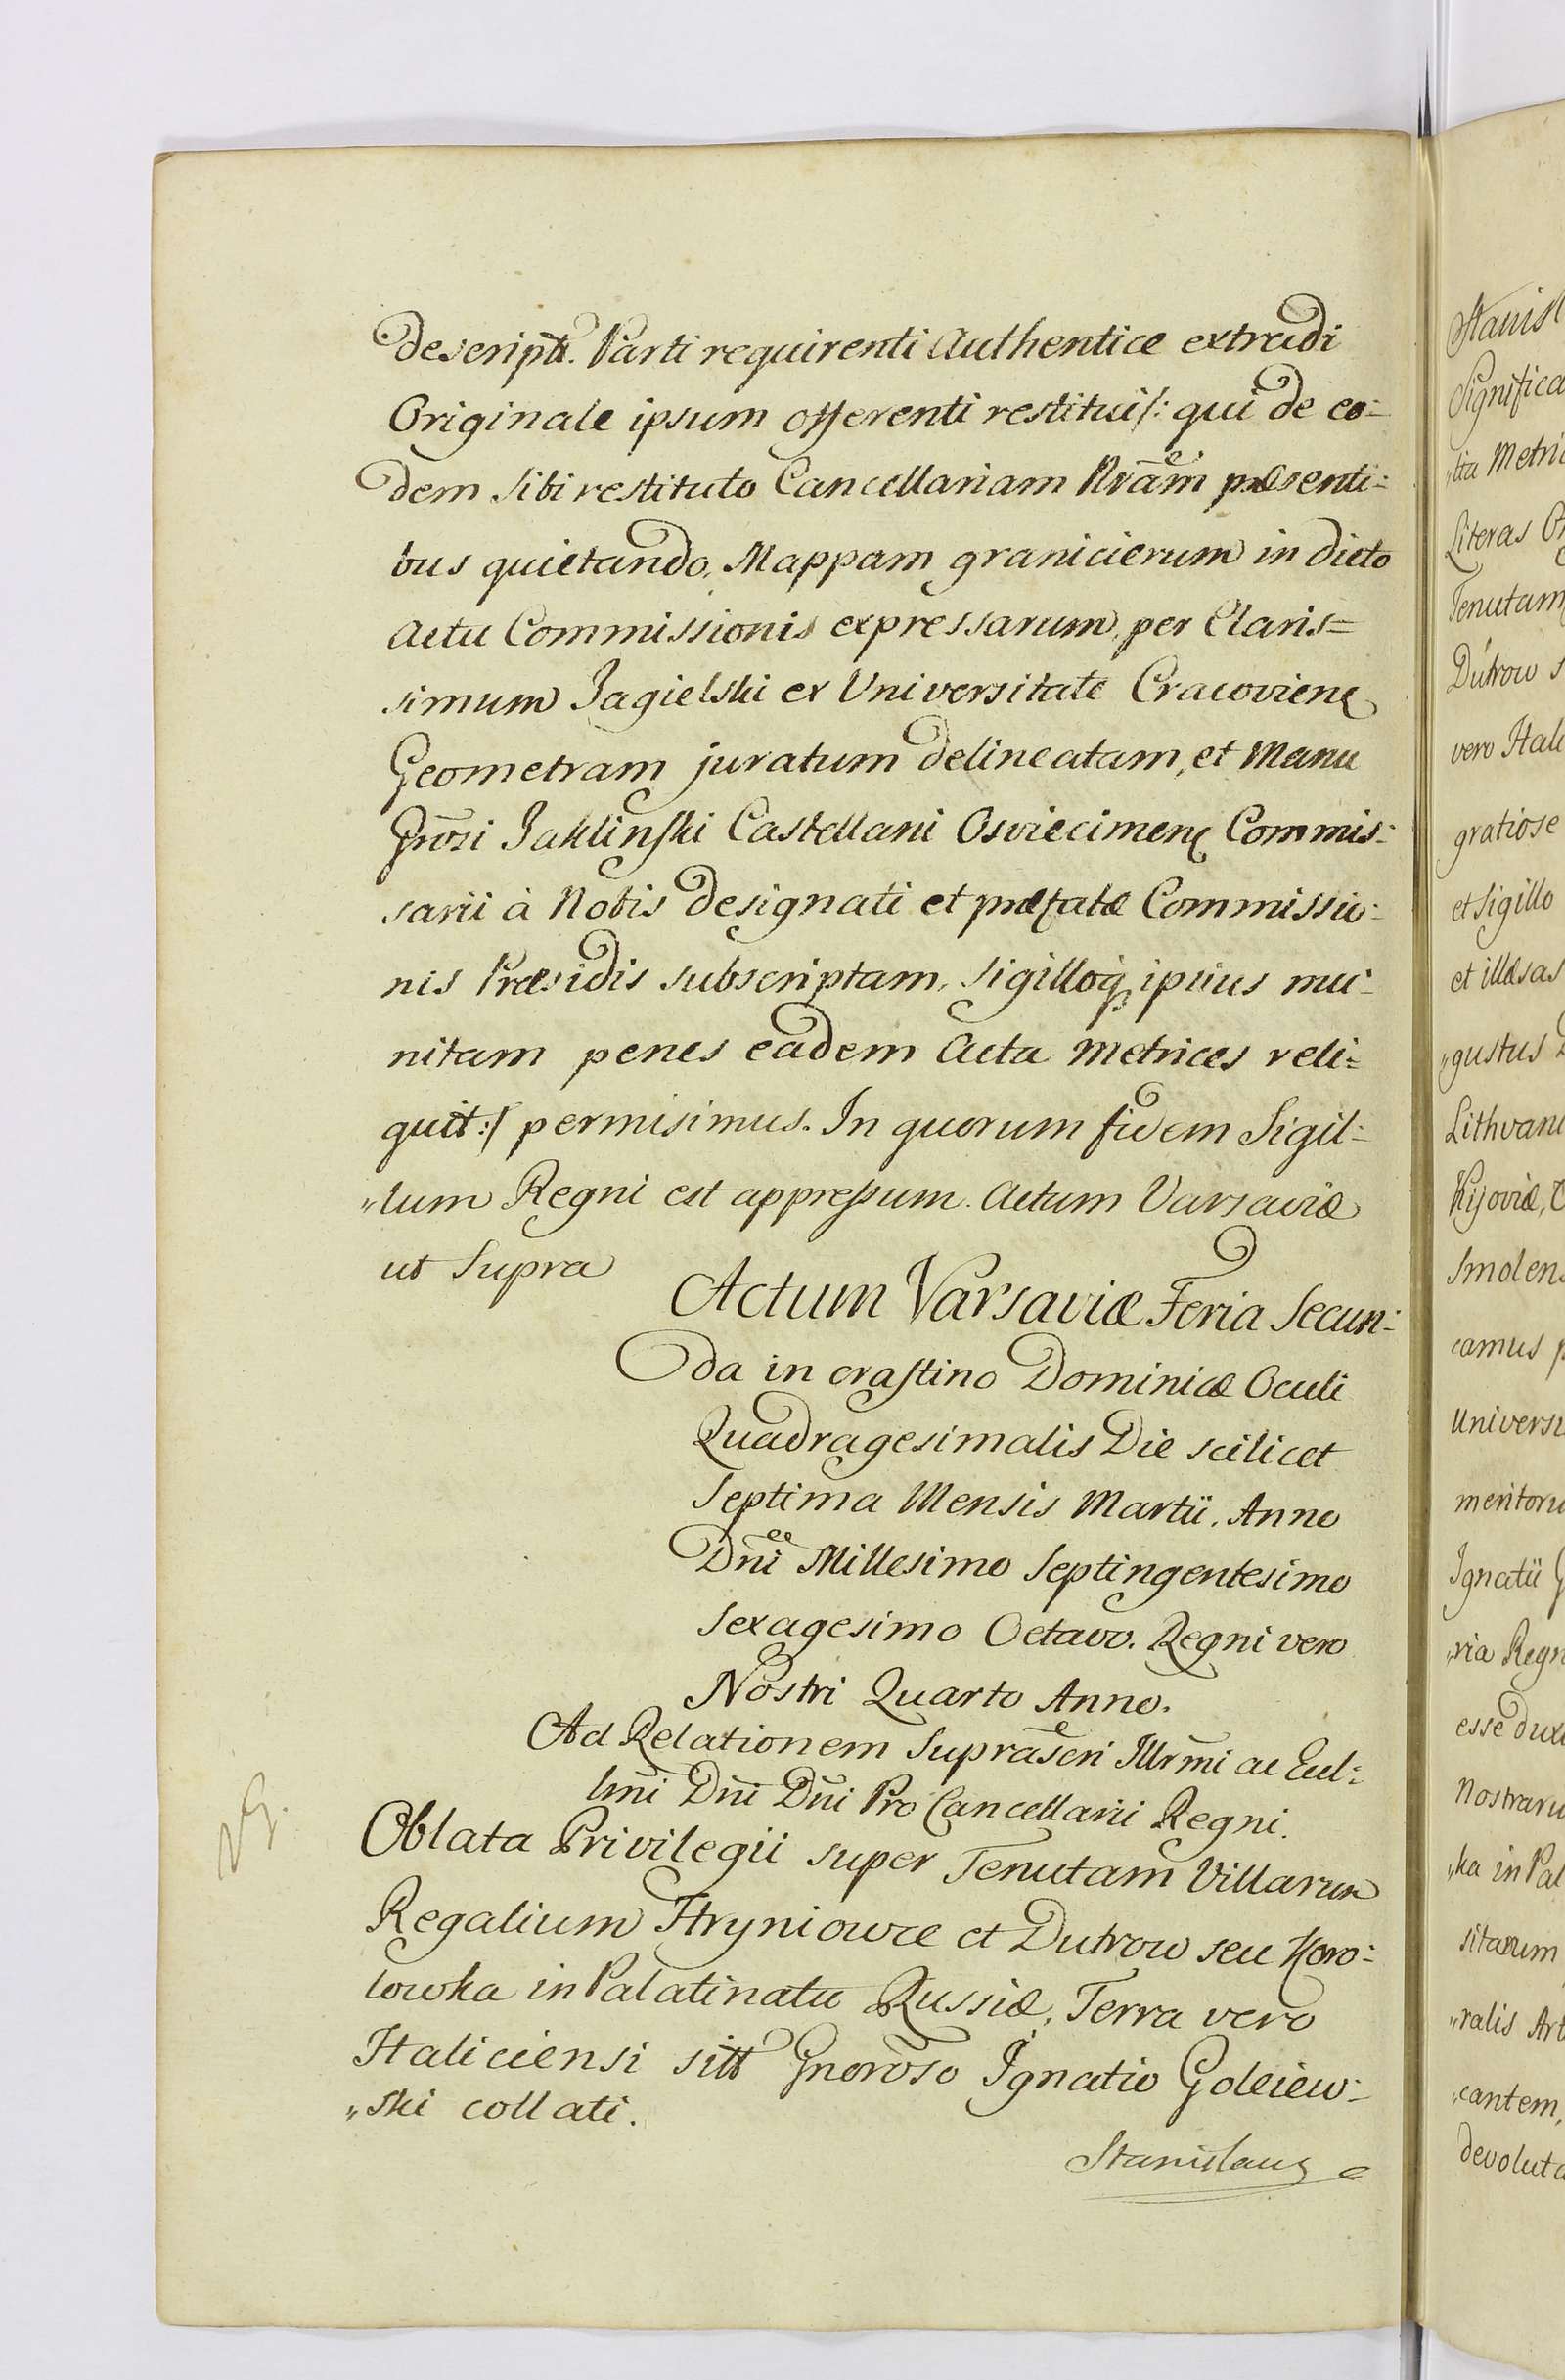 descriptt. Parti requirenti Authentice extradi
Originale ipsum offerenti restitui /: qui de eo=
dem sibi restituto Cancellariam Nrãm præsenti=
bus quietando, Mappam granicierum in dicto
Actu Commissionis expressarum, per Claris=
simum Jagielski ex Universitate Cracovien̄
Geometram juratum delineatam, et Manu
Gñosi Jaklinski Castellani Osviecimen̄ Commis=
sarii à Nobis designati et præfatæ Commissio=
nis Præsidis subscriptam, sigilloq̃ ipsius mu=
nitam penes eadem Acta Metrices reli=
quit :/ permisimus. In quorum fidem Sigil=
„lum Regni est appressum. Actum Varsaviæ
ut Supra
Actum Varsaviæ Feria Secun=
da in crastino Dominicæ Oculi
Quadragesimalis Die scilicet
Septima Mensis Martii. Anno
Dñi Millesimo Septingentesimo
Sexagesimo Octavo. Regni vero
Nostri Quarto Anno.
Ad Relationem Suprascri Illrmi ac Excl=
lmi Dñi Dñi Pro Cancellarii Regni.
Oblata Privilegii super Tenutam Villarum
Regalium Hryniowce et Dutrow seu Koro=
lowka in Palatinatu Russiæ, Terra vero
Haliciensi sitt Gnoroso Ignatio Goleiew=
„ski collati.
Stanislaus
Stanisl
Significa
„sta Metri
Literas Or
Tenutam
Dutrow s
vero Hali
gratiose
et Sigillo
et illæsas
„gustus D
Lithvani
Kijoviæ,
Smolens
camus p
Univers
meritoru
Ignatii G
„ria Regn
esse dux
Nostraru
„ka in Pal
sitarum
„ralis Art
„cantem,
devoluta